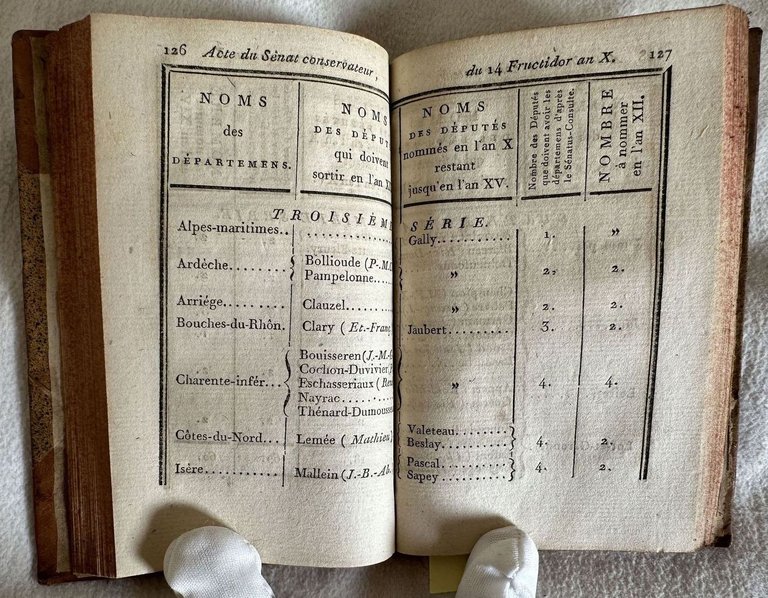 126 Acte du Sénat conservateur,
NOMS
des
DÉPARTEMENS.
NOMS
DES DÉPUT
qui doivent
sortir en l'an
TROISIÈM
Alpes-maritimes..
Ardèche........ Bollioude (P-M.
Pampelonne....
Arriége........ Clauzel.......
Bouches-du-Rhôn. Clary ( Et.-Franc.
Charente-infér... Bouisseren (J.-M.-
Cochon-Duvivier (
Eschasseriaux (
Nayrac.........
Thénard-Dumousse
Côtes-du-Nord... Lemée ( Mathieu )
Isère........... Mallein (J.-B.-Ab.
du 14 Fructidor an X. 127
NOMS
DES DÉPUTÉS
nommés en l'an X
restant
jusqu'en l'an XV.
Nombre des Députés
que doivent avoir les
départemens d'après
le Sénatus-Consulte.
NOMBRE
à nommer
en l'an XII.
SÉRIE.
Gally........ 1. »
» 2. 2.
» 2. 2.
Jaubert......... 3. 2.
» 4. 4.
Valeteau........
Beslay......... 4. 2.
Pascal.........
Sapey.......... 4. 2.